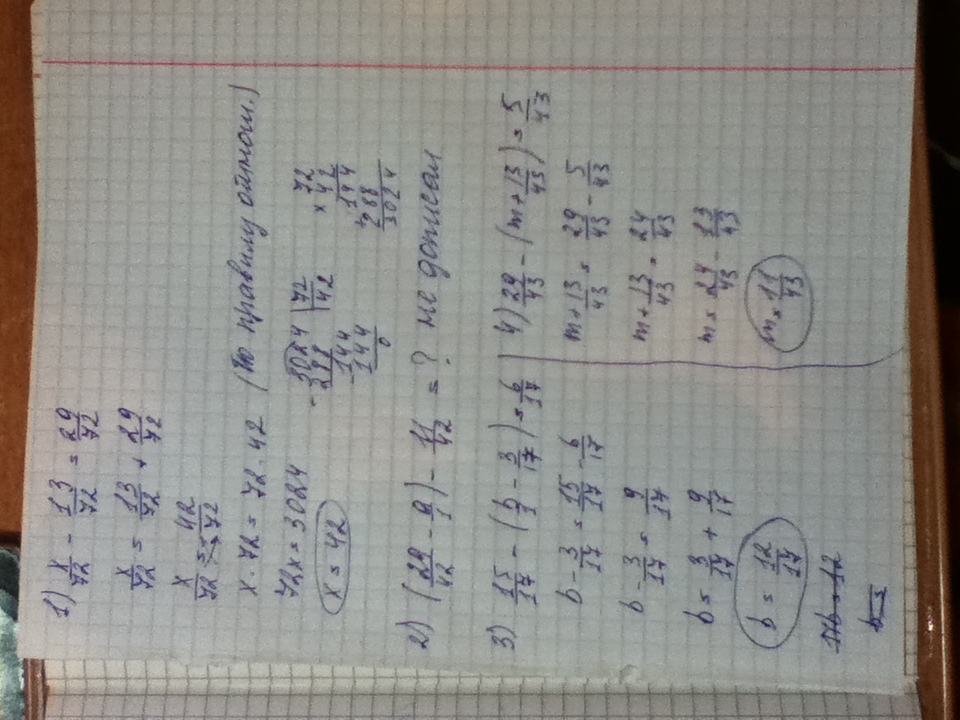 1) x/72 - 13/72 = 29/72
x/72 = 13/72 + 29/72
x/72 = 42/72
x · 72 = 72 · 42 (По правилу отнош.)
72x = 3024
x = 42
3024 | 72
- 288 | 42
- 144
144
0
× 72
42
+ 144
288
3024
2) (29/42 - a/1) - 11/42 = ? не дописал
3) 15/17 - (b/1 - 3/17) = 6/17
b - 3/17 = 15/17 - 6/17
b - 3/17 = 9/17
b = 3/17 + 9/17
b = 12/17
17b = 12
b =
4) 29/43 - (m + 13/43) = 5/43
m + 13/43 = 29/43 - 5/43
m + 13/43 = 24/43
m = 24/43 - 13/43
m = 11/43